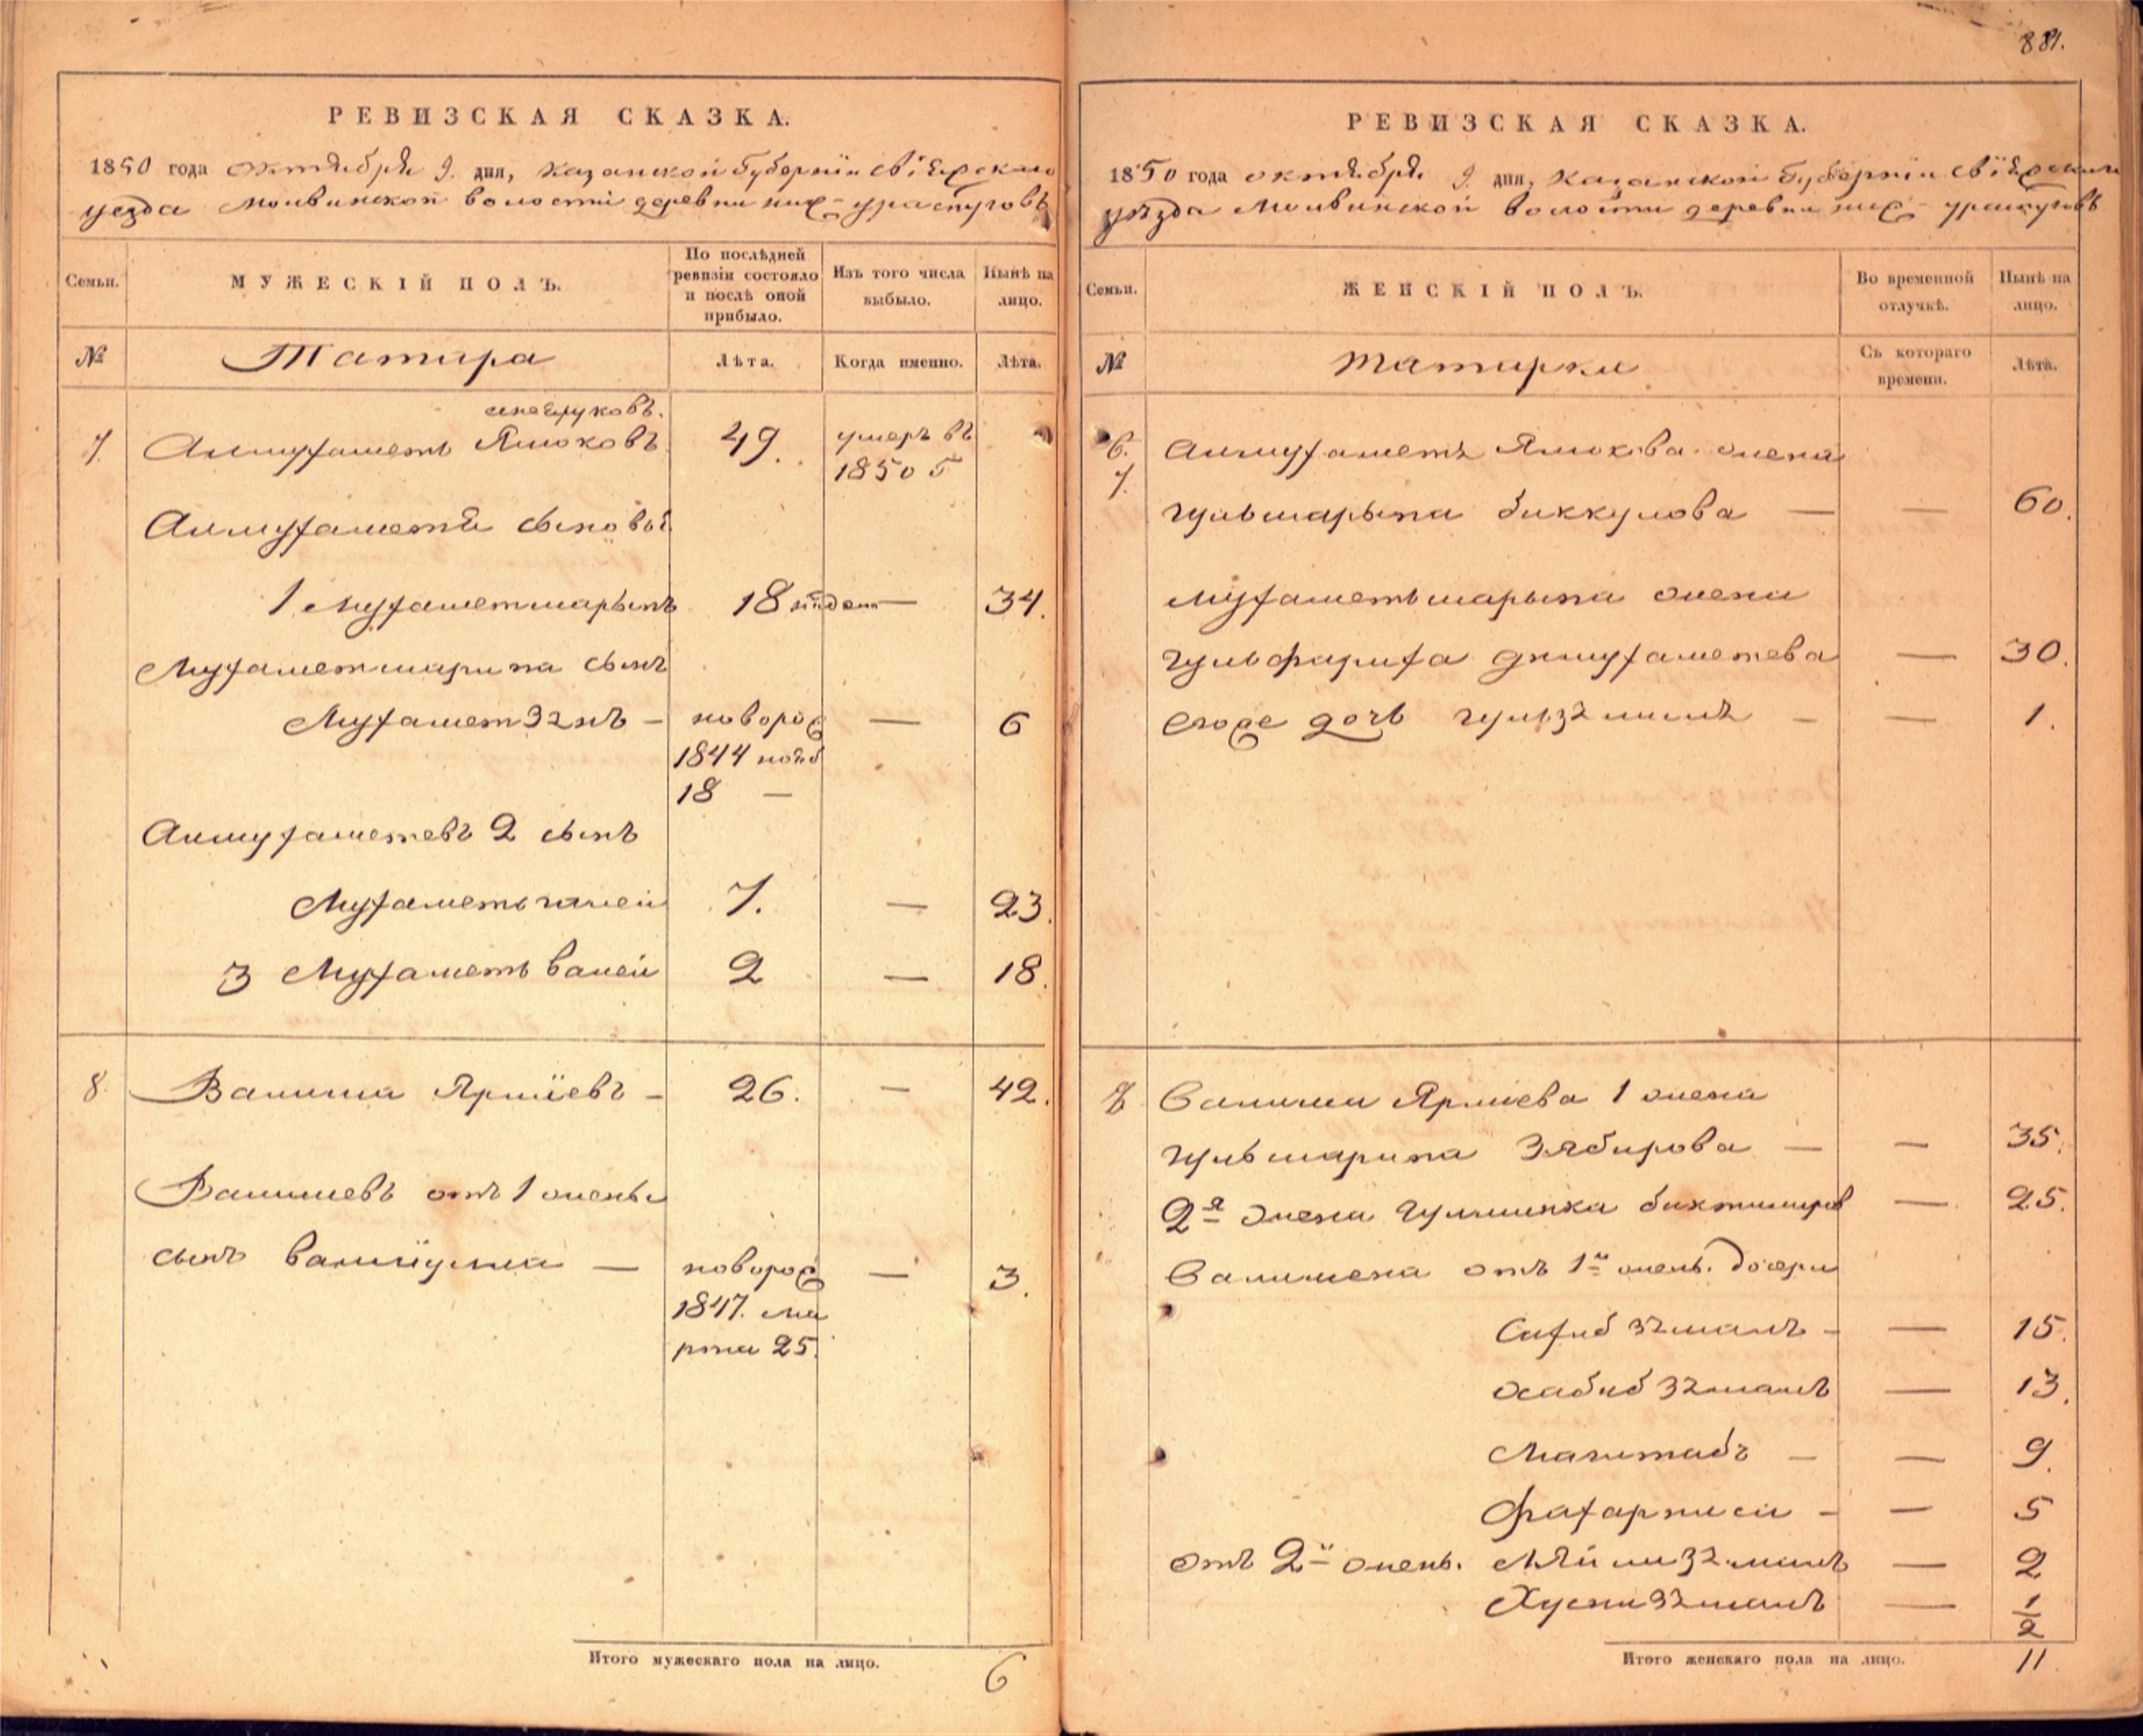 РЕВИЗСКАЯ СКАЗКА.
1850 года октября 9. дня, Казанской Губернiи Свiяжскаго
уезда Молвинской волости деревни ниж-ураспуговъ
Семьи.
МУЖЕСКIЙ ПОЛЪ.
По послѣдней ревизiи состояло и послѣ оной прибыло.
Изъ того числа выбыло.
Нынѣ на лицо.
№
Татара
Лѣта.
Когда именно.
Лѣта.
7. Алмухаметь Ямоковъ. 49. умеръ въ
1850 г
Алмухаметя сыновья
1 Мухаметшарыпъ 18 — 34.
Мухаметшарипа сынъ
Мухаметзянъ — новорож — 6
1844 нояб
18 —
Алмухаметевъ 2 сынъ
Мухаметьгалей 7. — 23.
3 Мухаметьвалей 2 — 18.
8. Валиша Ярмiевъ — 26. — 42.
Валишевъ отъ 1 жены
сынъ Валиiулла — новорож — 3.
1847. ма
рта 25.
Итого мужескаго пола на лицо. 6
881.
РЕВИЗСКАЯ СКАЗКА.
1850 года октября 9. дня, Казанской Губернiи Свiяжскаго
уѣзда Молвинской волости деревни ниж-ураспуговъ
Семьи.
ЖЕНСКIЙ ПОЛЪ.
Во временной отлучкѣ.
Нынѣ на лицо.
№
Татарки
Съ котораго времени.
Лѣта.
6.
7. Алмухаметъ Ямокова жена
Гульшарыпа Биккулова — — 60.
Мухаметьшарыпа жена
Гульфариха Дилмухаметева — 30.
Егоже дочь Гульзямалъ — — 1.
8 Валиши Ярмиева 1 жена
Гульшарипа Зябирова — — 35.
2я жена Бихтимиров — 25.
Валишева отъ 1й жены дочери
Сахибзямалъ — — 15.
Хабибзямалъ — 13.
Магитабъ — — 9.
Фахарниси — — 5
отъ 2й жены. Ляйлизямалъ — 2
Хуснизямалъ — 1/2
Итого женскаго пола на лицо. 11